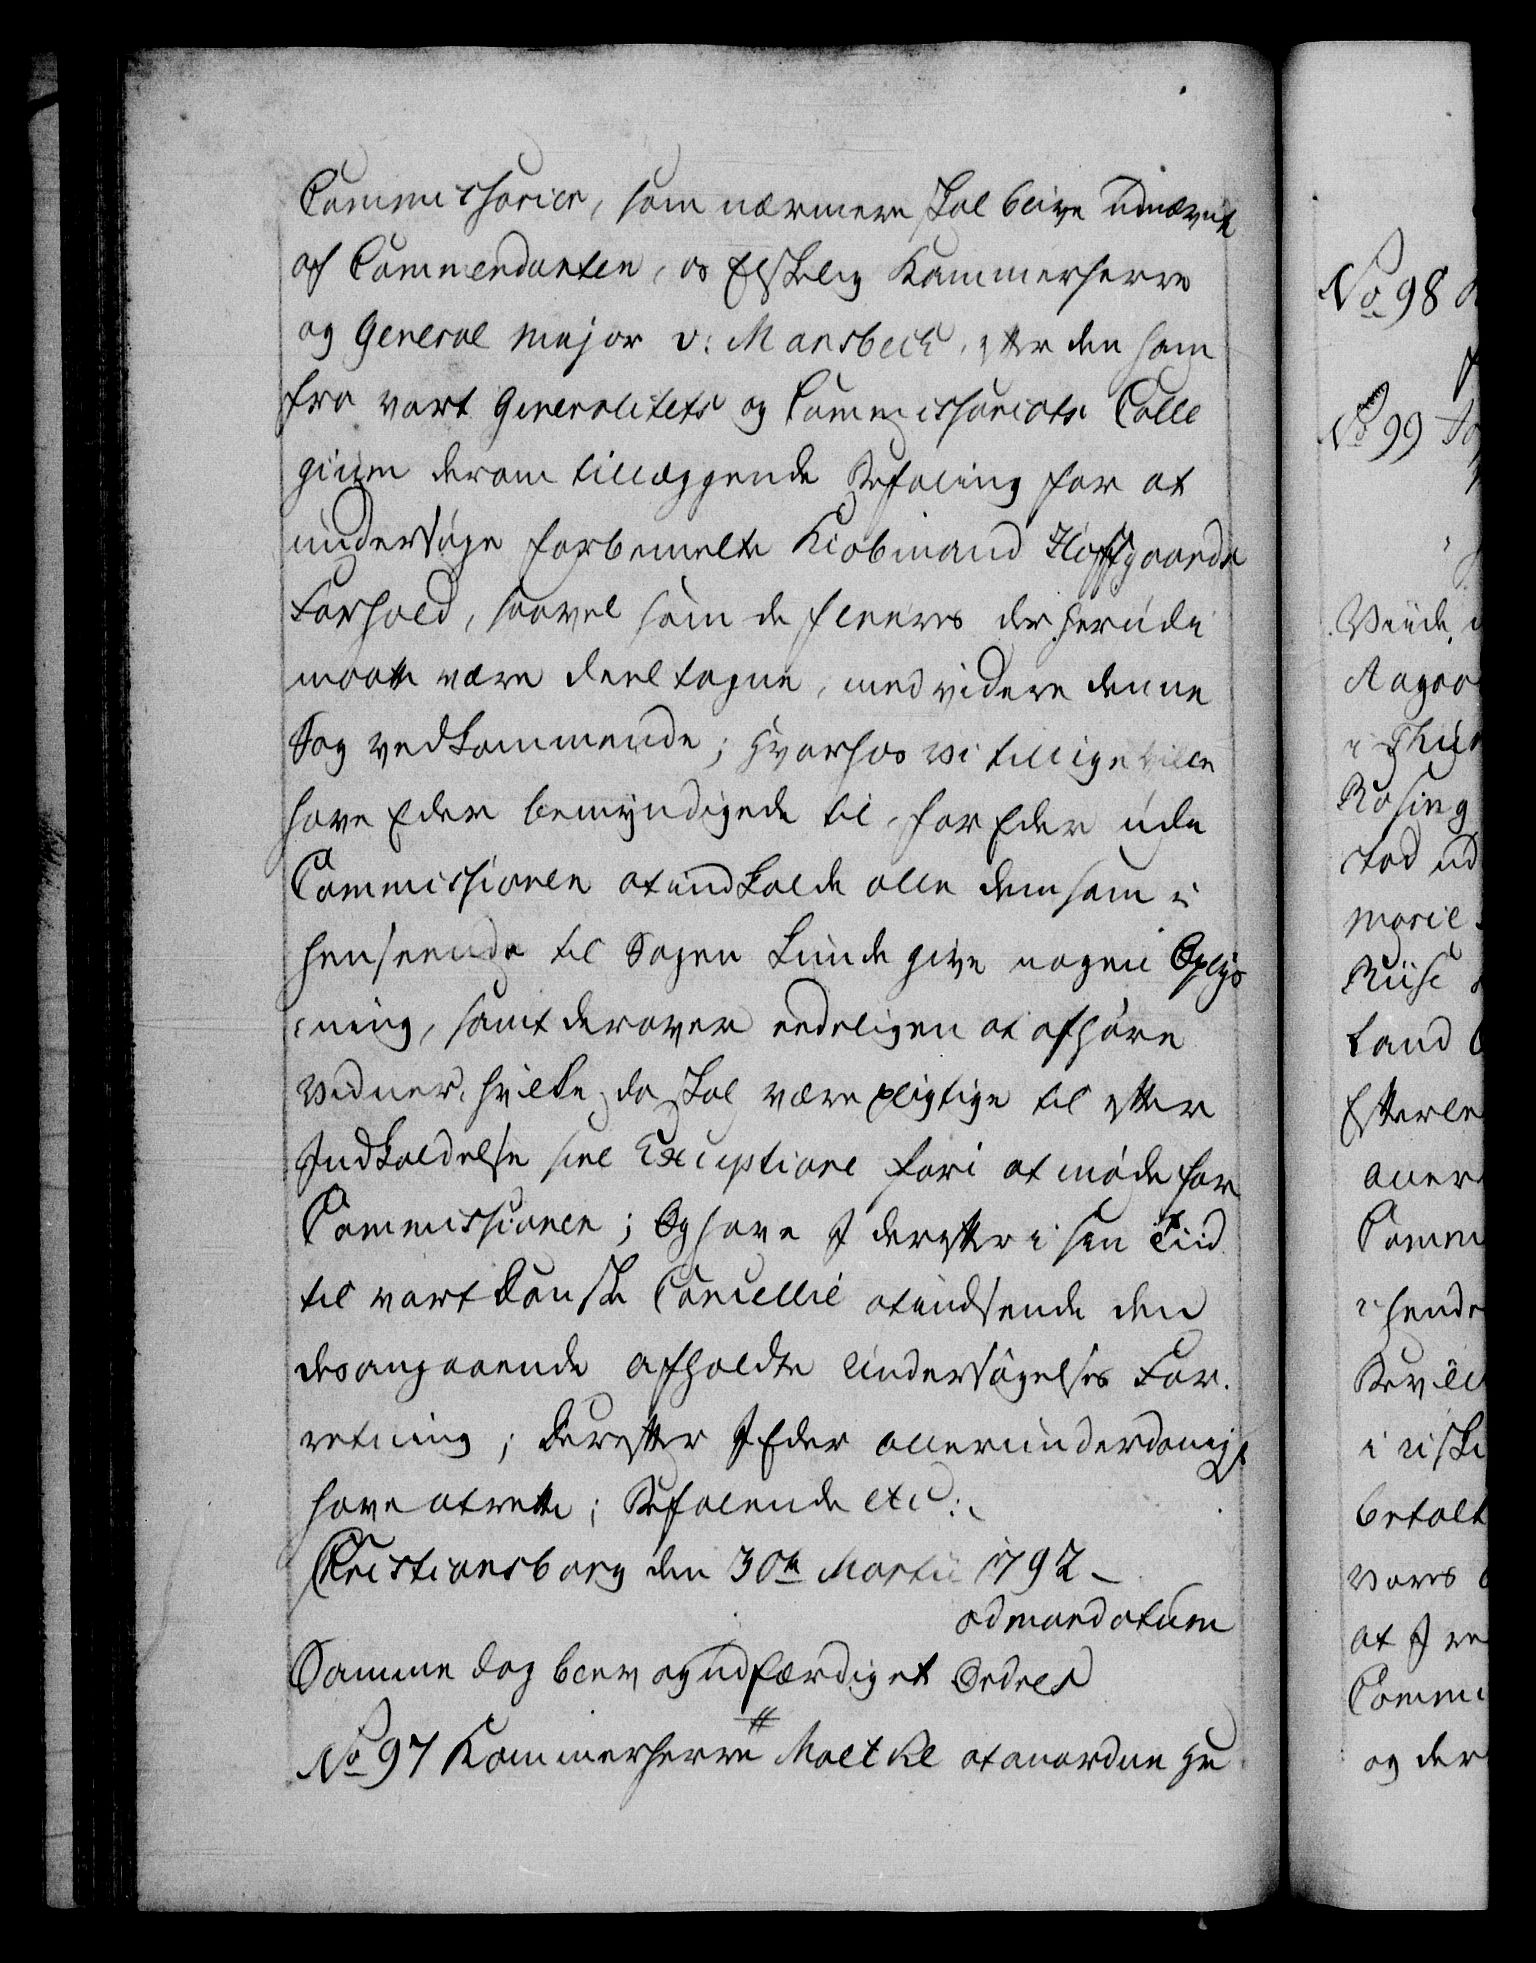 Commissarier, som nærmere skal blive udnævnt
af Commendanten, os Elskelig Kammerherre
og General Major v: Mansbach, efter den ham
fra vort Generalitets og Commissariats Colle
gium derom tillæggende Befaling for at
undersøge forbemelte Kiøbmand Hofgaards
Forhold, saavel som de fleeres der herudi
maatte være deeltagne, med videre denne
Sag vedkommende; hvorhos vi tillige ville
have Eder bemyndigede til, for Eder udi
Commissionen at indkalde alle dem som i
henseende til Sagen kunde give nogen Oplys
ning, samt derover eedeligen at afhøre
Vidner, hvilke da skal være pligtige til efter
Indkaldelse sine Exceptione fori at møde for
Commissionen; Og have I derefter i sin Tiid
til vort Danske Cancellie at indsende den
desangaaende afholdte Undersøgelses For-
retning; Derefter I Eder allerunderdanigst
have at rette; Befalende etc:
Christiansborg den 30te Martii 1792 –
ad mandatum
Samme dag blev og udfærdiget Ordres
No 97 Kammerherre Moltke at anordne He
No 98
No 99
Viide,
Rosing
tod ud
Marie
Riise
land
Efterle
aller
Comm
i hende
Bevill
betalt
vores
at I ve
Commi
og der